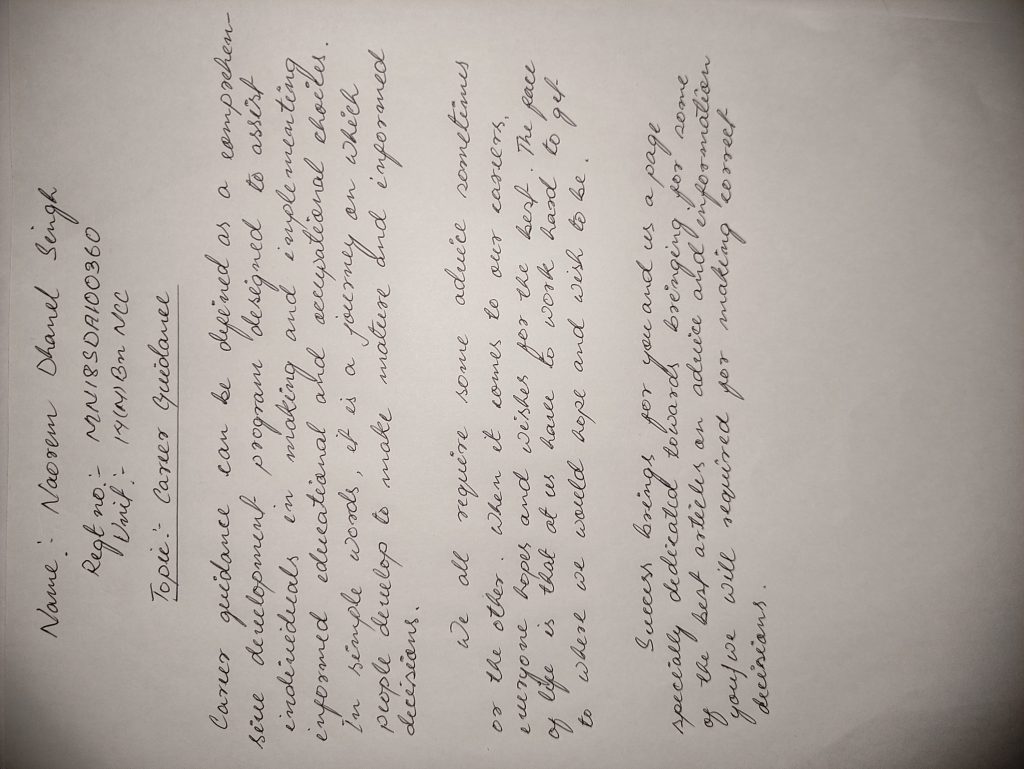 Name :- Naorem Chanel Singh
Regt no:- MN18SDA100360
Unit :- 14(M)Bn NCC
Topic:- Career Guidance
Career guidance can be defined as a comprehen-
sive development program designed to assist
individuals in making and implementing
informed educational and occupational choices.
In simple words, it is a journey on which
people develop to make mature and informed
decisions.
We all require some advice sometimes
or the other. When it comes to our careers,
everyone hopes and wishes for the best. The pace
of life is that at us have to work hard to get
to where we would hope and wish to be.
Success brings for you and us a page
specially dedicated towards bringing for some
of the best articles on advice and information
you/we will required for making correct
decisions.